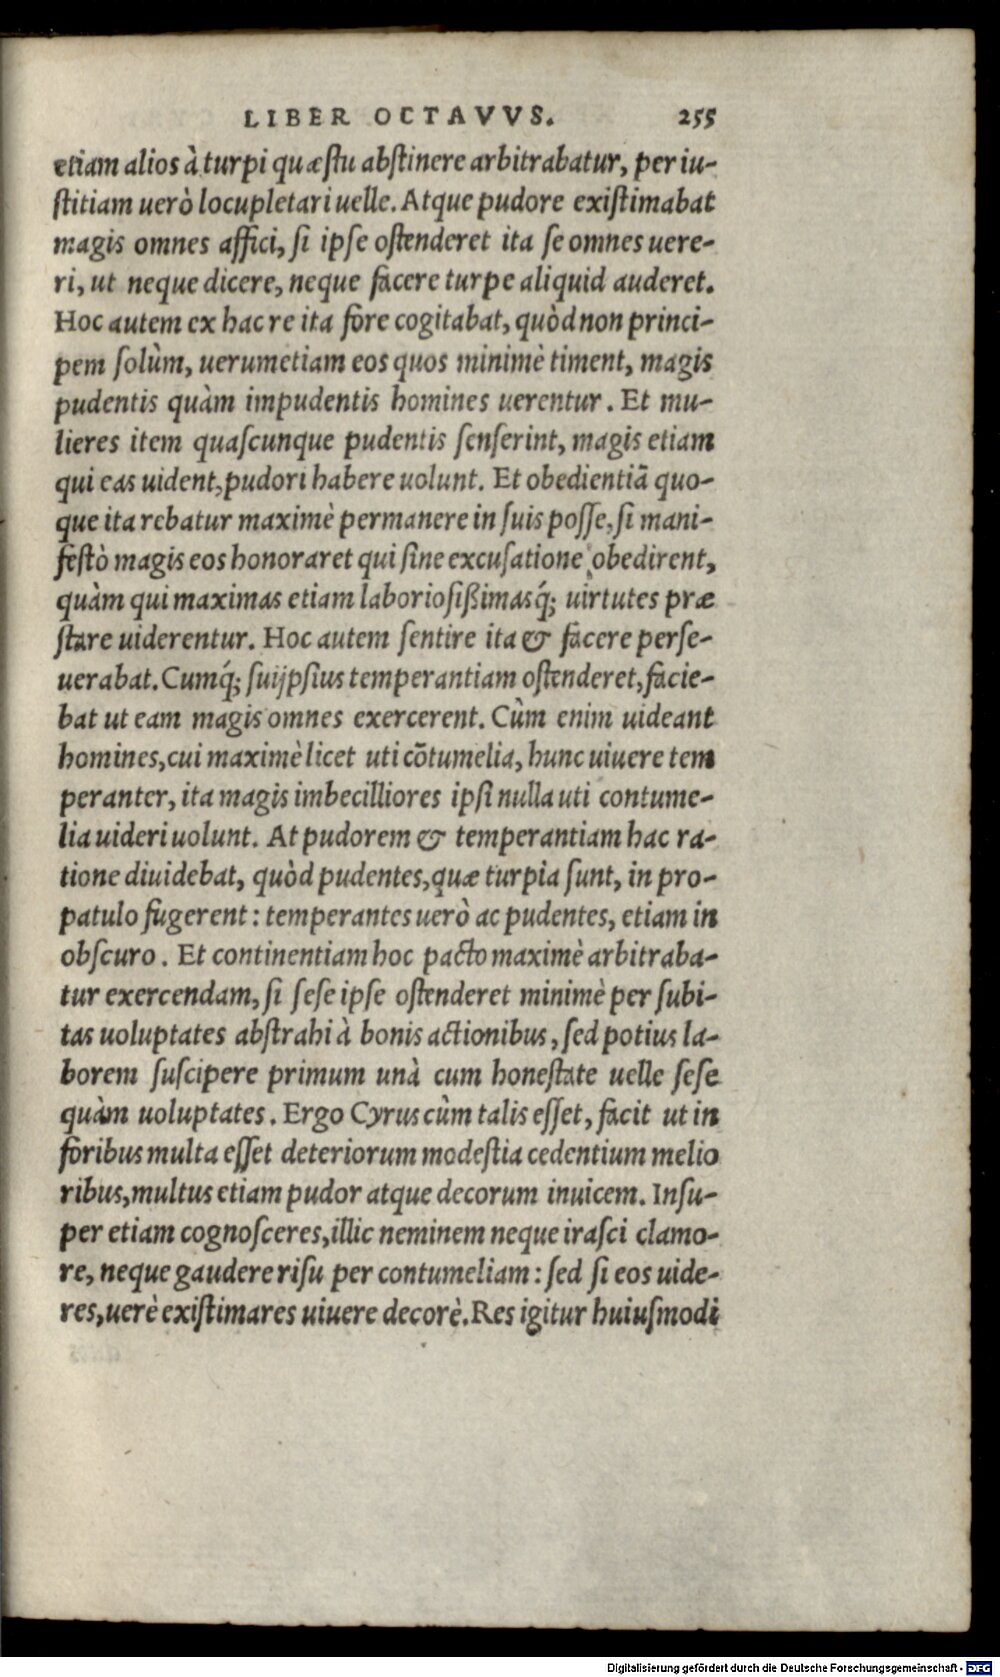 LIBER OCTAVVS. 255
etiam alios à turpi quæstu abstinere arbitrabatur, per iu-
stitiam uerò locupletari uelle. Atque pudore existimabat
magis omnes affici, si ipse ostenderet ita se omnes uere-
ri, ut neque dicere, neque facere turpe aliquid auderet.
Hoc autem ex hac re ita fore cogitabat, quòd non princi-
pem solùm, uerumetiam eos quos minimè timent, magis
pudentis quàm impudentis homines uerentur. Et mu-
lieres item quascunque pudentis senserint, magis etiam
qui eas uident, pudori habere uolunt. Et obedientiã quo-
que ita rebatur maximè permanere in suis posse, si mani-
festò magis eos honoraret qui sine excusatione obedirent,
quàm qui maximas etiam laboriosißimasq́; uirtutes præ
stare uiderentur. Hoc autem sentire ita & facere perse-
uerabat. Cumq́; suijpsius temperantiam ostenderet, facie-
bat ut eam magis omnes exercerent. Cùm enim uideant
homines, cui maximè licet uti cõtumelia, hunc uiuere tem
peranter, ita magis imbecilliores ipsi nulla uti contume-
lia uideri uolunt. At pudorem & temperantiam hac ra-
tione diuidebat, quòd pudentes, quæ turpia sunt, in pro-
patulo fugerent: temperantes uerò ac pudentes, etiam in
obscuro. Et continentiam hoc pacto maximè arbitraba-
tur exercendam, si sese ipse ostenderet minimè per subi-
tas uoluptates abstrahi à bonis actionibus, sed potius la-
borem suscipere primum unà cum honestate uelle sese
quàm uoluptates. Ergo Cyrus cùm talis esset, facit ut in
foribus multa esset deteriorum modestia cedentium melio
ribus, multus etiam pudor atque decorum inuicem. Insu-
per etiam cognosceres, illic neminem neque irasci clamo-
re, neque gaudere risu per contumeliam: sed si eos uide-
res, uerè existimares uiuere decorè. Res igitur huiusmodi
Digitalisierung gefördert durch die Deutsche Forschungsgemeinschaft - DFG